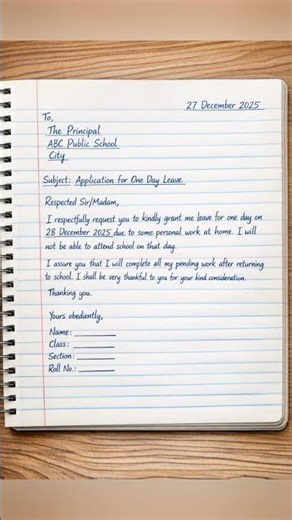 27 December 2025
To,
The Principal
ABC Public School
City
Subject: Application for One Day Leave
Respected Sir/Madam,
I respectfully request you to kindly grant me leave for one day on
28 December 2025 due to some personal work at home. I will
not be able to attend school on that day.
I assure you that I will complete all my pending work after returning
to school. I shall be very thankful to you for your kind consideration.
Thanking you.
Yours obediently,
Name: ________
Class: ________
Section: ________
Roll No.: ________